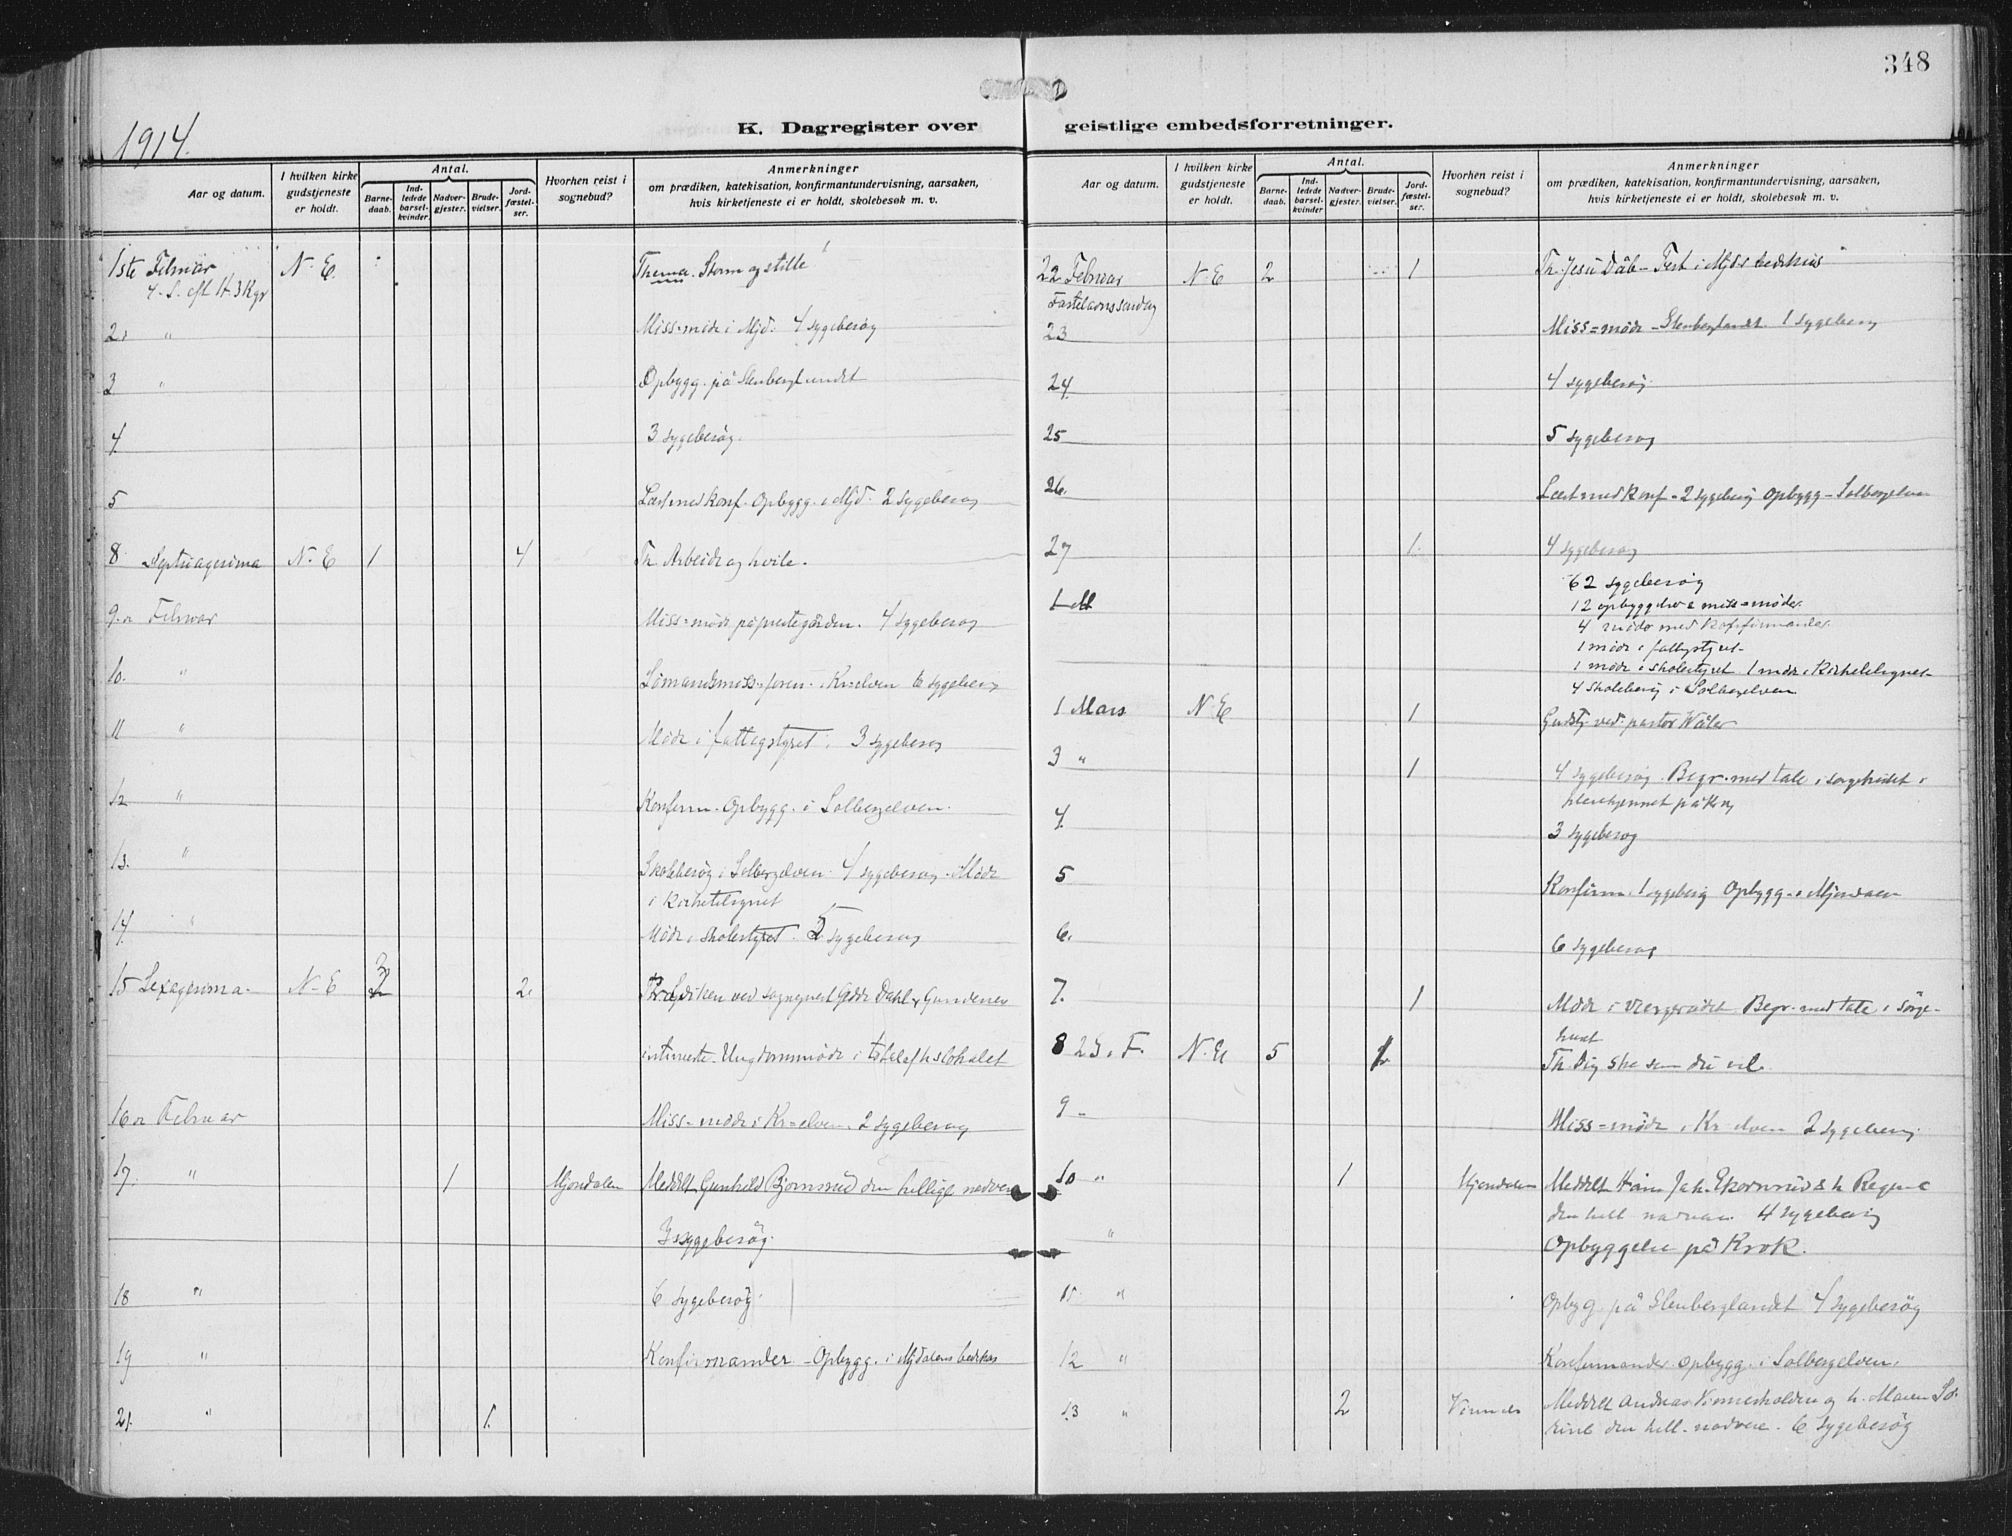 348
1914.
K. Dagregister over geistlige embedsforretninger.
Aar og datum.
I hvilken kirke gudstjeneste er holdt.
Antal.
Barne-daab.
Ind-ledede barsel-kvinder.
Nadver-gjester.
Brude-vielser.
Jord-fæstel-ser.
Hvorhen reist i sognebud?
Anmerkninger
om prædiken, katekisation, konfirmantundervisning, aarsaken,
hvis kirketjeneste ei er holdt, skolebesøk m. v.
1ste Februar N. E. Thema. Storm og stille
4. S. eft H. 3 Kgr
2. " Miss=møde i Mjd. 4 sygebesøg
3 " Opbygg. på Stenberglandet
4. 3 sygebesøg.
5 Læst med konf. Opbygg. i Mjd. 2 sygebesøg
8 Septuagesima N. E 1 4 Th. Arbeide og hvile.
9. Februar Miss=møde på prestegården. 4 sygebesøg
10. " Sömandsmiss. foren. i Kr.elven 6 sygebesøg
11 " Møde i fattigstyret. 3 sygebesøg
12 " Konfirm. Opbygg. i Solbergelven.
13. " Skolebesøg i Solbergelven. 4 sygebesøg. Møde
i Kirketilsynet
14. " Møde i skolestyret. 5 sygebesøg
15 Sexagesima. N. E 3 2. ved sogneprest Dahl
Ungdommøde i lokalet
16 Februar Miss=møde i Kr=elven. 2 sygebesøg
17. " 1 Mjøndalen Meddelt Gunhild Bjørnsrud den hellige nadvere
3 sygebesøg.
18 " 6 sygebesøg.
19 " Konfirmander. Opbygg. i Mjdalens bedehus
21. " 1.
Aar og datum.
I hvilken kirke gudstjeneste er holdt.
Antal.
Barne-daab.
Ind-ledede barsel-kvinder
Nadver-gjester.
Brude-vielser.
Jord-fæstel-ser.
Hvorhen reist i sognebud?
Anmerkninger
om prædiken, katekisation, konfirmantundervisning, aarsaken,
hvis kirketjeneste ei er holdt, skolebesøk m. v.
22 Februar N. E 2 1 Th. Jesu Dåb - Fest i Mjd.s bedehus
Fastelavnssøndag
23 Miss=møde - Stenberglandet. 1 sygebesøg
24. 4 sygebesøg.
25 5 sygebesøg
26. Læst med konf - 2 sygebesøg Opbygg - Solbergelven
27 1. 4 sygebesøg
62 sygebesøg
12 opbyggelser & miss=møder.
4 møder med konfirmander.
1 møde i fattigstyret.
1 møde i skolestyret 1 møde i Kirketilsynet.
4 skolebesøg i Solbergelven
1 Mars N. E 1 Gudstj. ved pastor Wåler
3 " 1 4 sygebesøg. Begr. med tale i sørgehuset i
pleiehjemmet på Krok
4. 3 sygebesøg
5 Konfirm. 1 sygebesøg Opbygg. i Mjøndalen
6. 6 sygebesøg
7. 1 Møde i Begr. med tale i sørge-
huset
8 2 S. i F. N. E 5 Th. Dig ske som du vil.
9 - Miss=møde i Kr elven 2 sygebesøg
10 " 1 Mjøndalen Meddelt
den hell nadvere. 4 sygebesøg
" Opbyggelse på Krok.
11 " Opbyg på Stenberglandet 4 sygebesøg
12 " Konfirmander. Opbygg. i Solbergelven.
13 " 2 Meddelt Andreas og h. Maren Sø-
rine den hell. nadvere. 6 sygebesøg